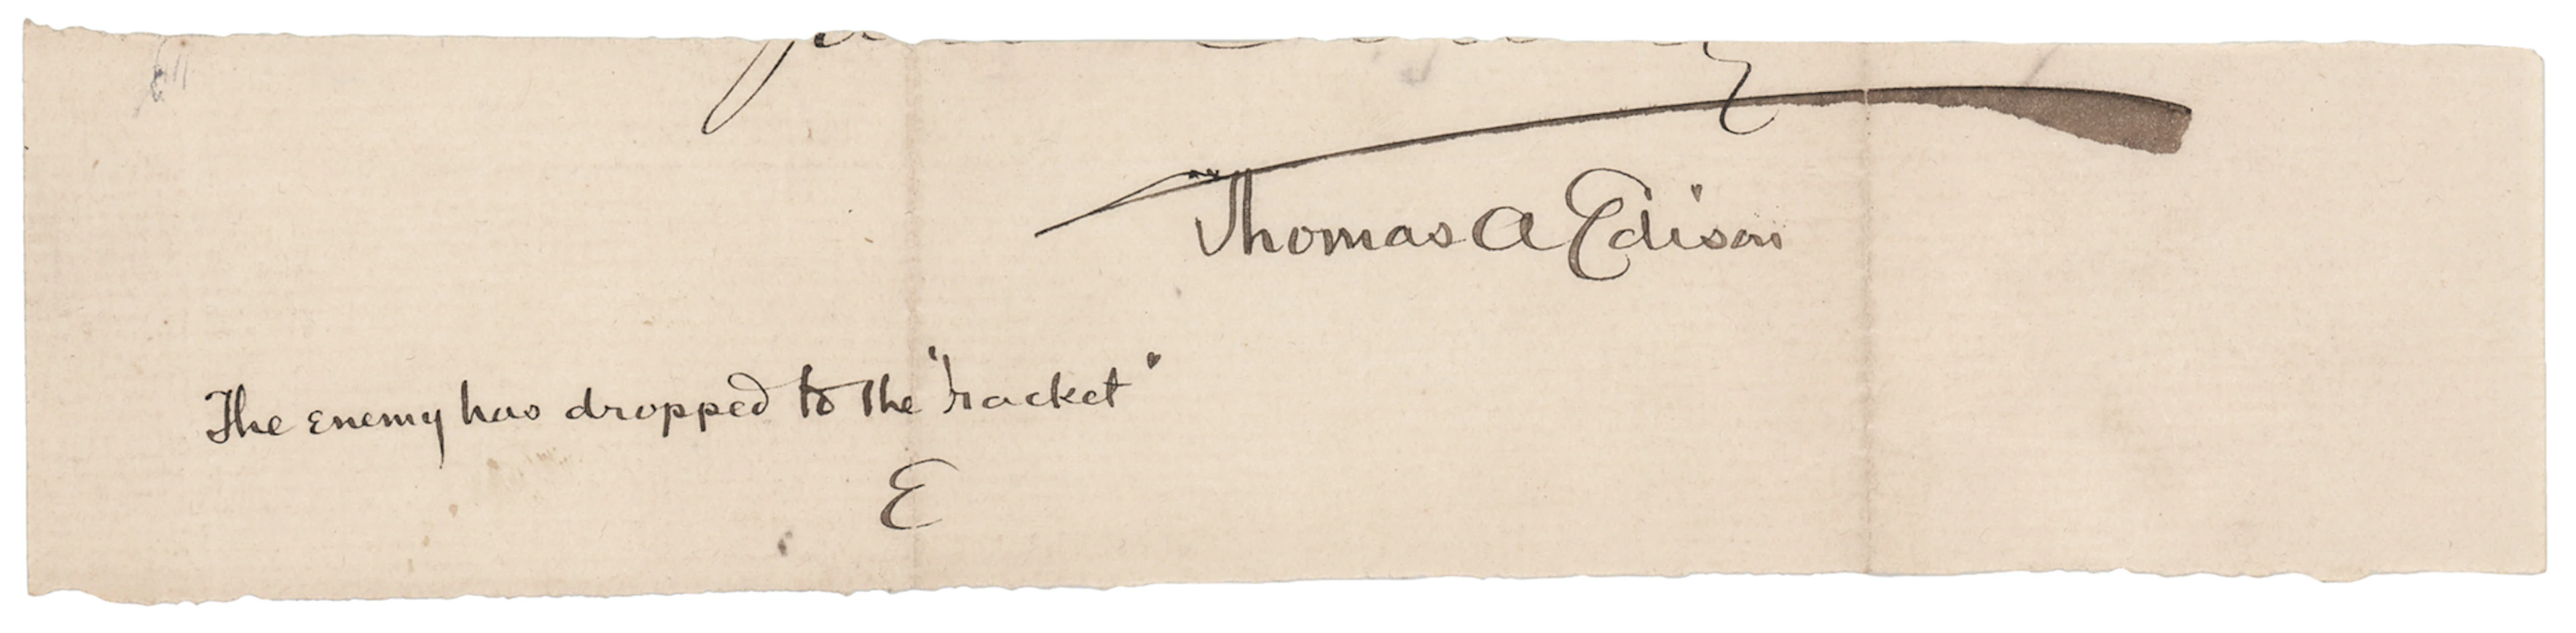 Thomas A Edison
The enemy has dropped to the "racket"
E